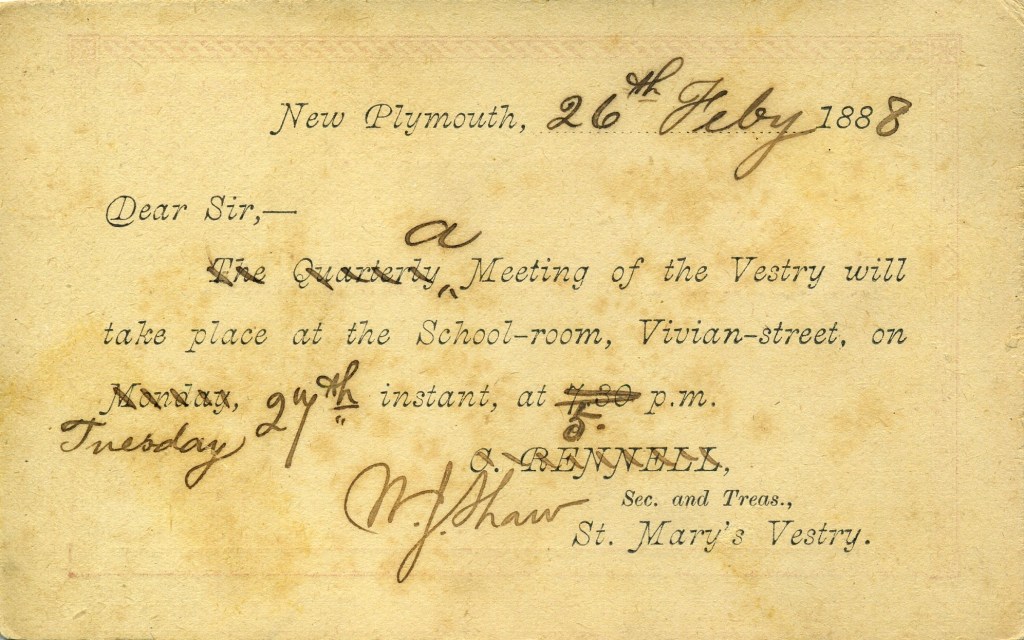 New Plymouth, 26th Feby 1888
Dear Sir,—
a
The Quarterly Meeting of the Vestry will
take place at the School-room, Vivian-street, on
Monday, 27th instant, at 7.30 p.m.
Tuesday 5.
C. RENNELL,
W. J. Shaw Sec. and Treas.,
St. Mary's Vestry.